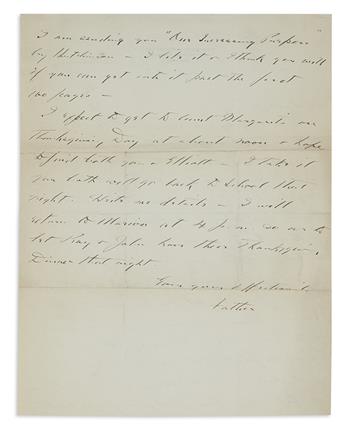 I am sending you "One Increasing Purpose"
by Hutchinson - I like it & think you will
if you can get into it past the first
100 pages -
I expect to get to Aunt Margaret's on
Thanksgiving Day at about noon & hope
to find both you & Elliott - I take it
you both will go back to School that
night. Write me details - I will
return to Marion at 4 p.m. so as to
let Ray & Julia have their Thanksgiving
Dinner that night
Ever yours affectionately
Father